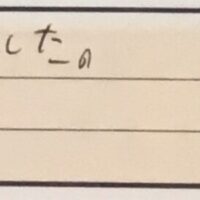 した。